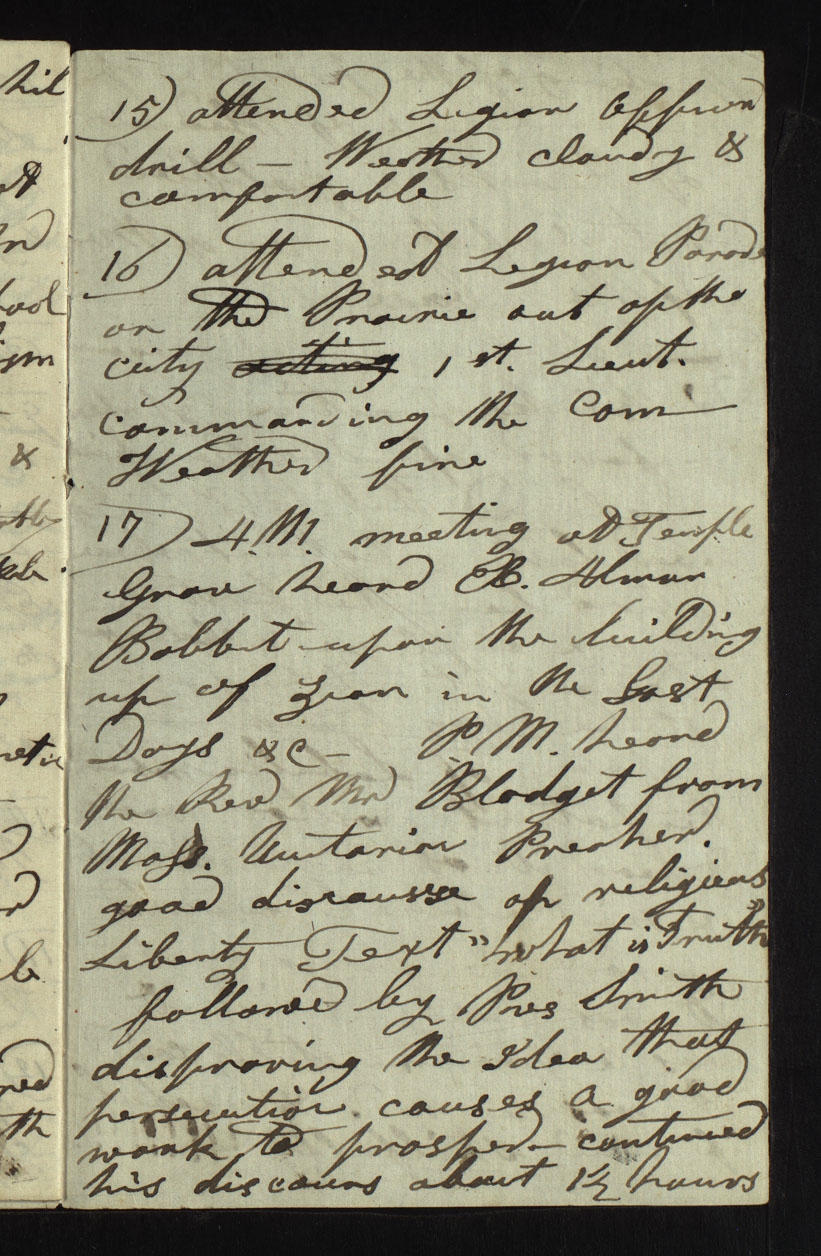 15) attended Legion Officer
drill — Weather cloudy &
comfortable
16) attended Legion Parade
on the Prairie out of the
city acting 1 st. Lieut.
commanding the Com
Weather fine
17) A.M. meeting at Temple
Grove heard Almon
Babbit upon the building
up of Zion in the Last
Days &c — P.M. heard
the Rev Mr Blodget from
Mass. Unitarian Preacher.
good discourse of religious
Liberty Text "what is Truth"
followed by Pres Smith
disproving the Idea that
persecution causes a good
work to prosper — continued
his discours about 1½ hours